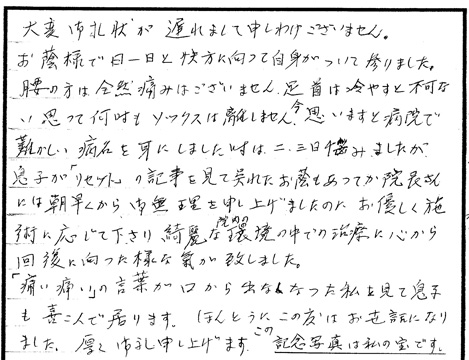 大変御礼状が遅れまして申しわけございません。
お蔭様で日一日と快方に向って自身がついて参りました。
腰の方は全然痛みはございません。足首は冷やすと不可な
い思って何時もソックスは離しません。今思いますと病院で
難かしい病名を耳にしました時は二、三日悩みましたが
息子が「リセット」の記事を見て呉れたお蔭もあってか院長さん
には朝早くから御無理を申し上げましたのにお優しく施
術に応じて下さり綺麗な院内の環境の中での治療に心から
回後に向った様な氣が致しました。
「痛い痛い」の言葉が口から出なくなった私を見て息子
も喜こんで居ります。ほんとうにこの度はお世話になり
ました。厚く御礼申し上げます。この記念写真は私の宝です。